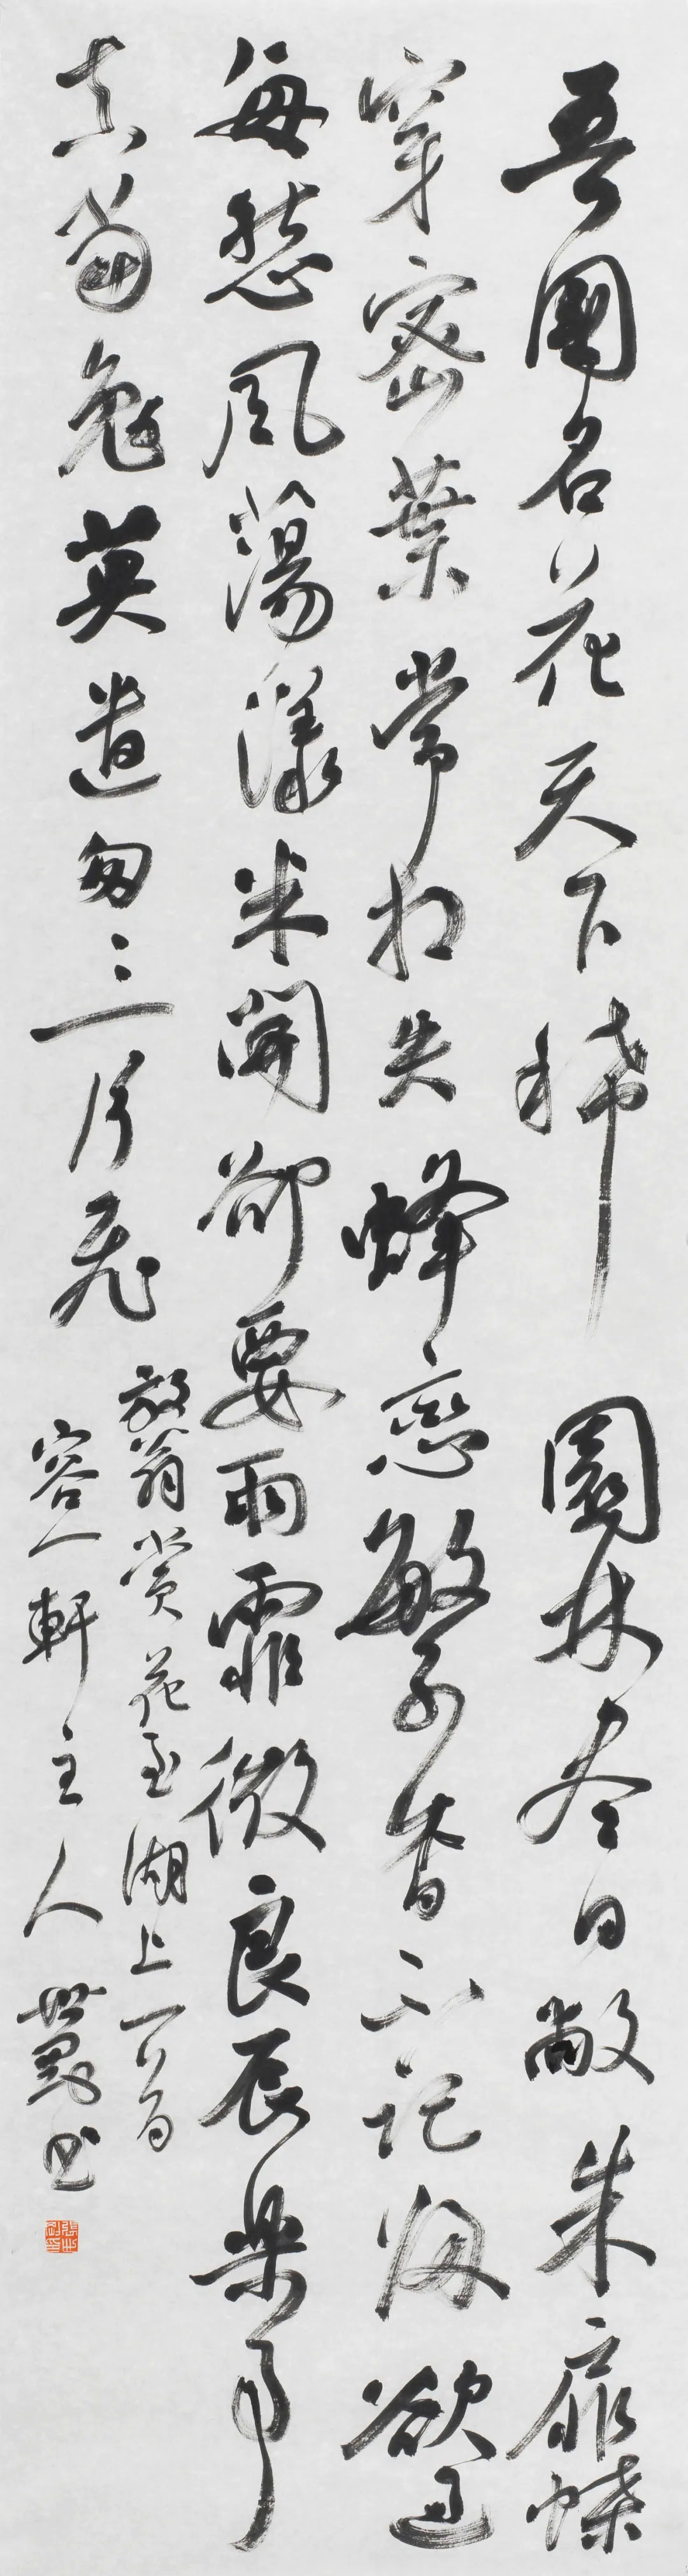 吾國名花天下稀園林尽日敞朱扉蝶
穿密葉常相失蜂戀繁香不記歸欲過
每愁風蕩漾半開卻要雨霏微良辰樂事
真當勉莫遣匆匆一片飛
放翁賞花至湖上一首
容一軒主人世書